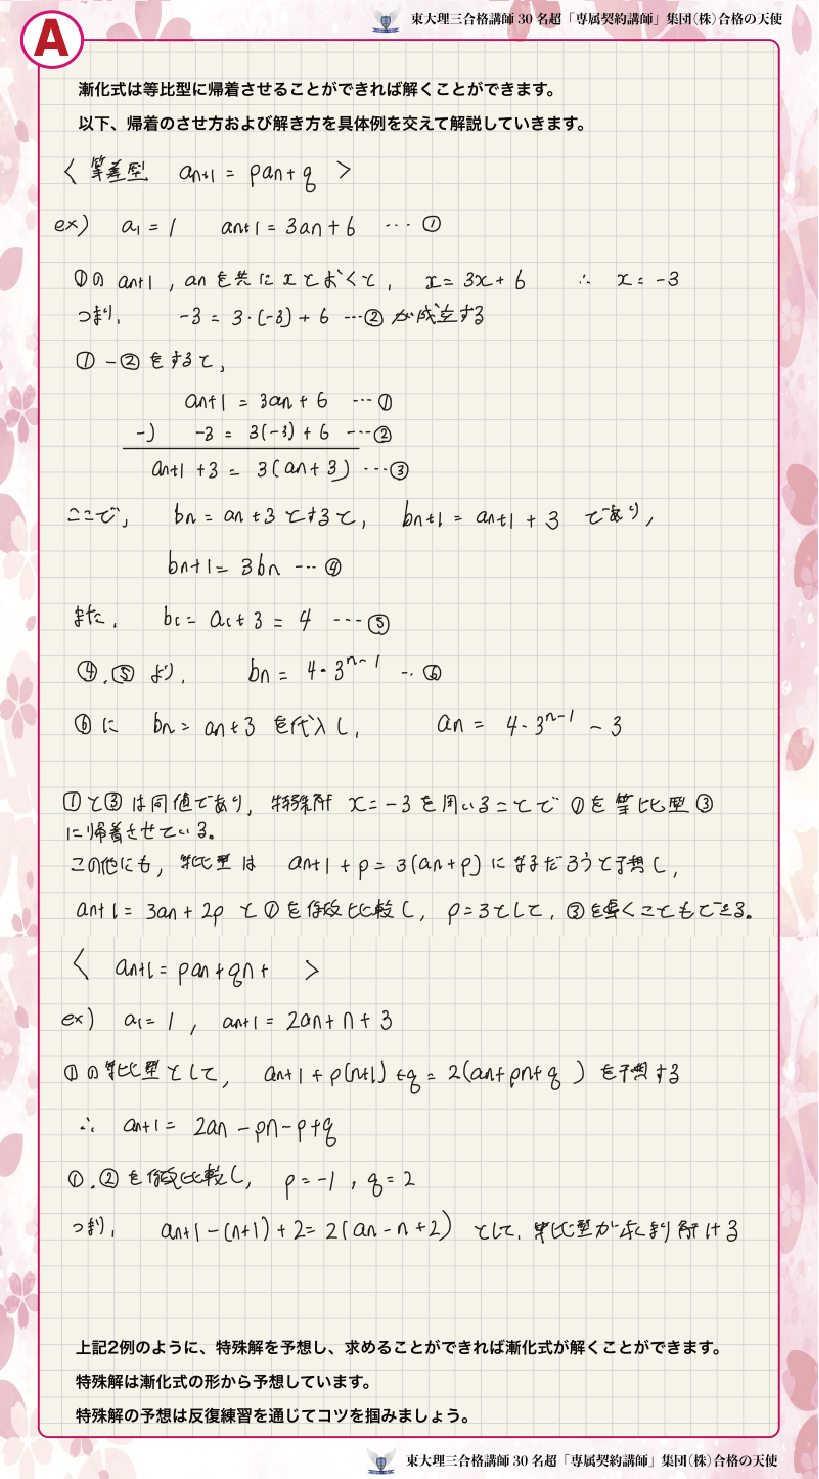 東大理三合格講師30名超「専属契約講師」集団(株)合格の天使
A
漸化式は等比型に帰着させることができれば解くことができます。
以下、帰着のさせ方および解き方を具体例を交えて解説していきます。
〈 等差型 an+1 = pan + q 〉
ex) a1 = 1 an+1 = 3an + 6 … ①
①の an+1 , an を共に x とおくと, x = 3x + 6 ∴ x = -3
つまり, -3 = 3・(-3) + 6 …② が成立する
① - ② をすると,
an+1 = 3an + 6 …①
-) -3 = 3(-3) + 6 …②
an+1 + 3 = 3(an + 3) …③
ここで, bn = an + 3 とすると, bn+1 = an+1 + 3 であり,
bn+1 = 3bn … ④
また, b1 = a1 + 3 = 4 … ⑤
④,⑤ より, bn = 4・3^n-1 … ⑥
⑥に bn = an + 3 を代入し, an = 4・3^n-1 - 3
①と③は同値であり, 特殊解 x = -3 を用いることで ①を等比型③
に帰着させている。
この他にも, 等比型は an+1 + p = 3(an + p) になるだろうと予想し,
an+1 = 3an + 2p と①を係数比較し, p = 3として, ③を導くこともできる。
〈 an+1 = pan + qn + 〉
ex) a1 = 1 , an+1 = 2an + n + 3
①の等比型として, an+1 + p(n+1) + q = 2(an + pn + q ) を予想する
∴ an+1 = 2an - pn - p + q
①,② を係数比較し, p = -1 , q = 2
つまり, an+1 - (n+1) + 2 = 2(an - n + 2) として, 等比型が求まり解ける
上記2例のように、特殊解を予想し、求めることができれば漸化式が解くことができます。
特殊解は漸化式の形から予想しています。
特殊解の予想は反復練習を通じてコツを掴みましょう。
東大理三合格講師30名超「専属契約講師」集団(株)合格の天使